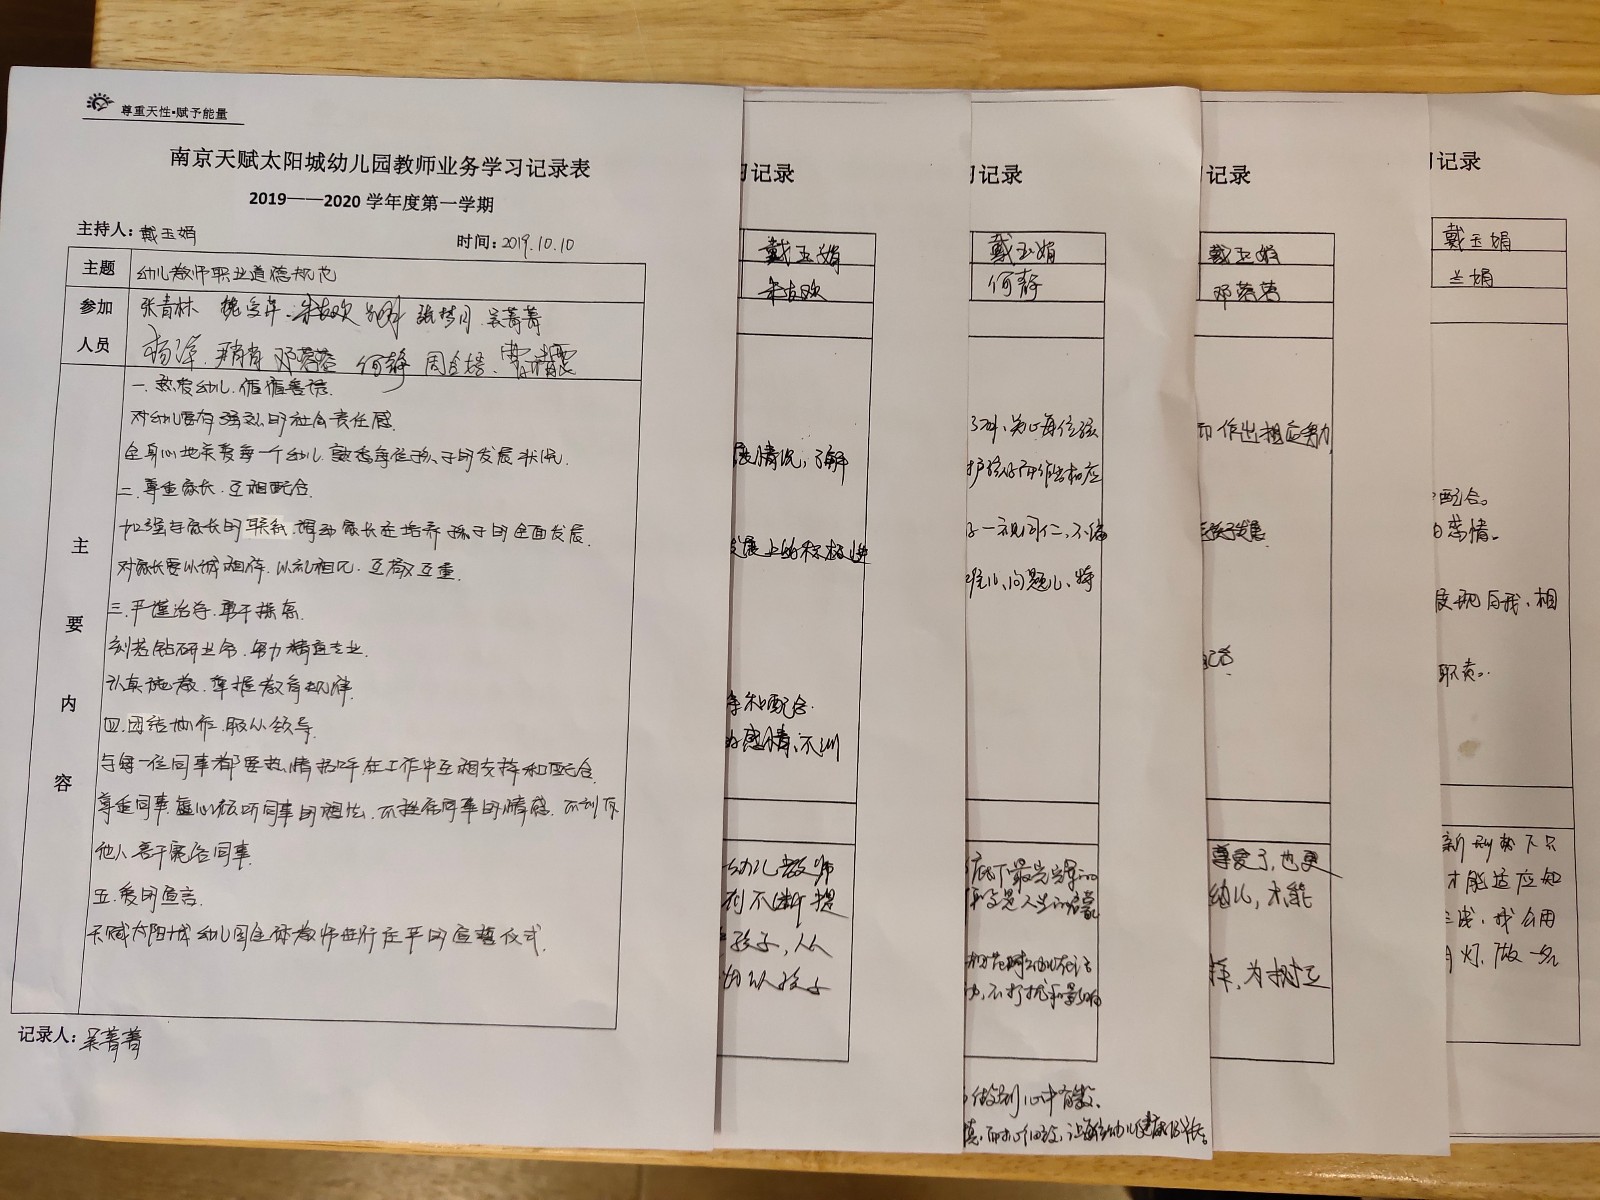 尊重天性•赋予能量
南京天赋太阳城幼儿园教师业务学习记录表
2019——2020 学年度第一学期
主持人：戴玉娟
时间：2019.10.10
主题 幼儿教师职业道德规范
参加人员 张青林 宋友欢 张梦月 吴菁菁
杨洋 邓蓉蓉 何静
主要内容
一.热爱幼儿.循循善诱.
对幼儿要有强烈的社会责任感.
全身心地关爱每一个幼儿.熟悉每位孩子的发展状况.
二.尊重家长.互相配合.
加强与家长的联系.调动家长在培养孩子的全面发展.
对家长要以诚相待.以礼相见.互敬互重.
三.严谨治学.勇于探索.
刻苦钻研业务.努力精通专业.
认真施教.掌握教育规律.
四.团结协作.服从领导.
与每一位同事都要热情招呼,在工作中互相支持和配合.
尊重同事.虚心倾听同事的想法.不挫伤同事的情感.
他人.善于宽容同事.
五.爱的宣言.
天赋太阳城幼儿园全体教师进行庄严的宣誓仪式.
记录人：吴菁菁
习记录
戴玉娟
宋友欢
展情况，了解
发展上的积极进
争和配合.
感情、不训
幼儿教师
不断提
孩子，从
切以孩子
习记录
戴玉娟
何静
护孩子而作出相应
一视同仁、不偏
问题儿、特
底下最光辉的
是人生的启蒙
不打扰和影响
做到心中有数、
习记录
戴玉娟
邓蓉蓉
而作出相应努力
尊爱了,也更
幼儿,才能
择,为树立
习记录
戴玉娟
兰娟
配合。
的感情。
展现自我、相
职责。
新形势下只
才能适应如
我会用
灯.做一名